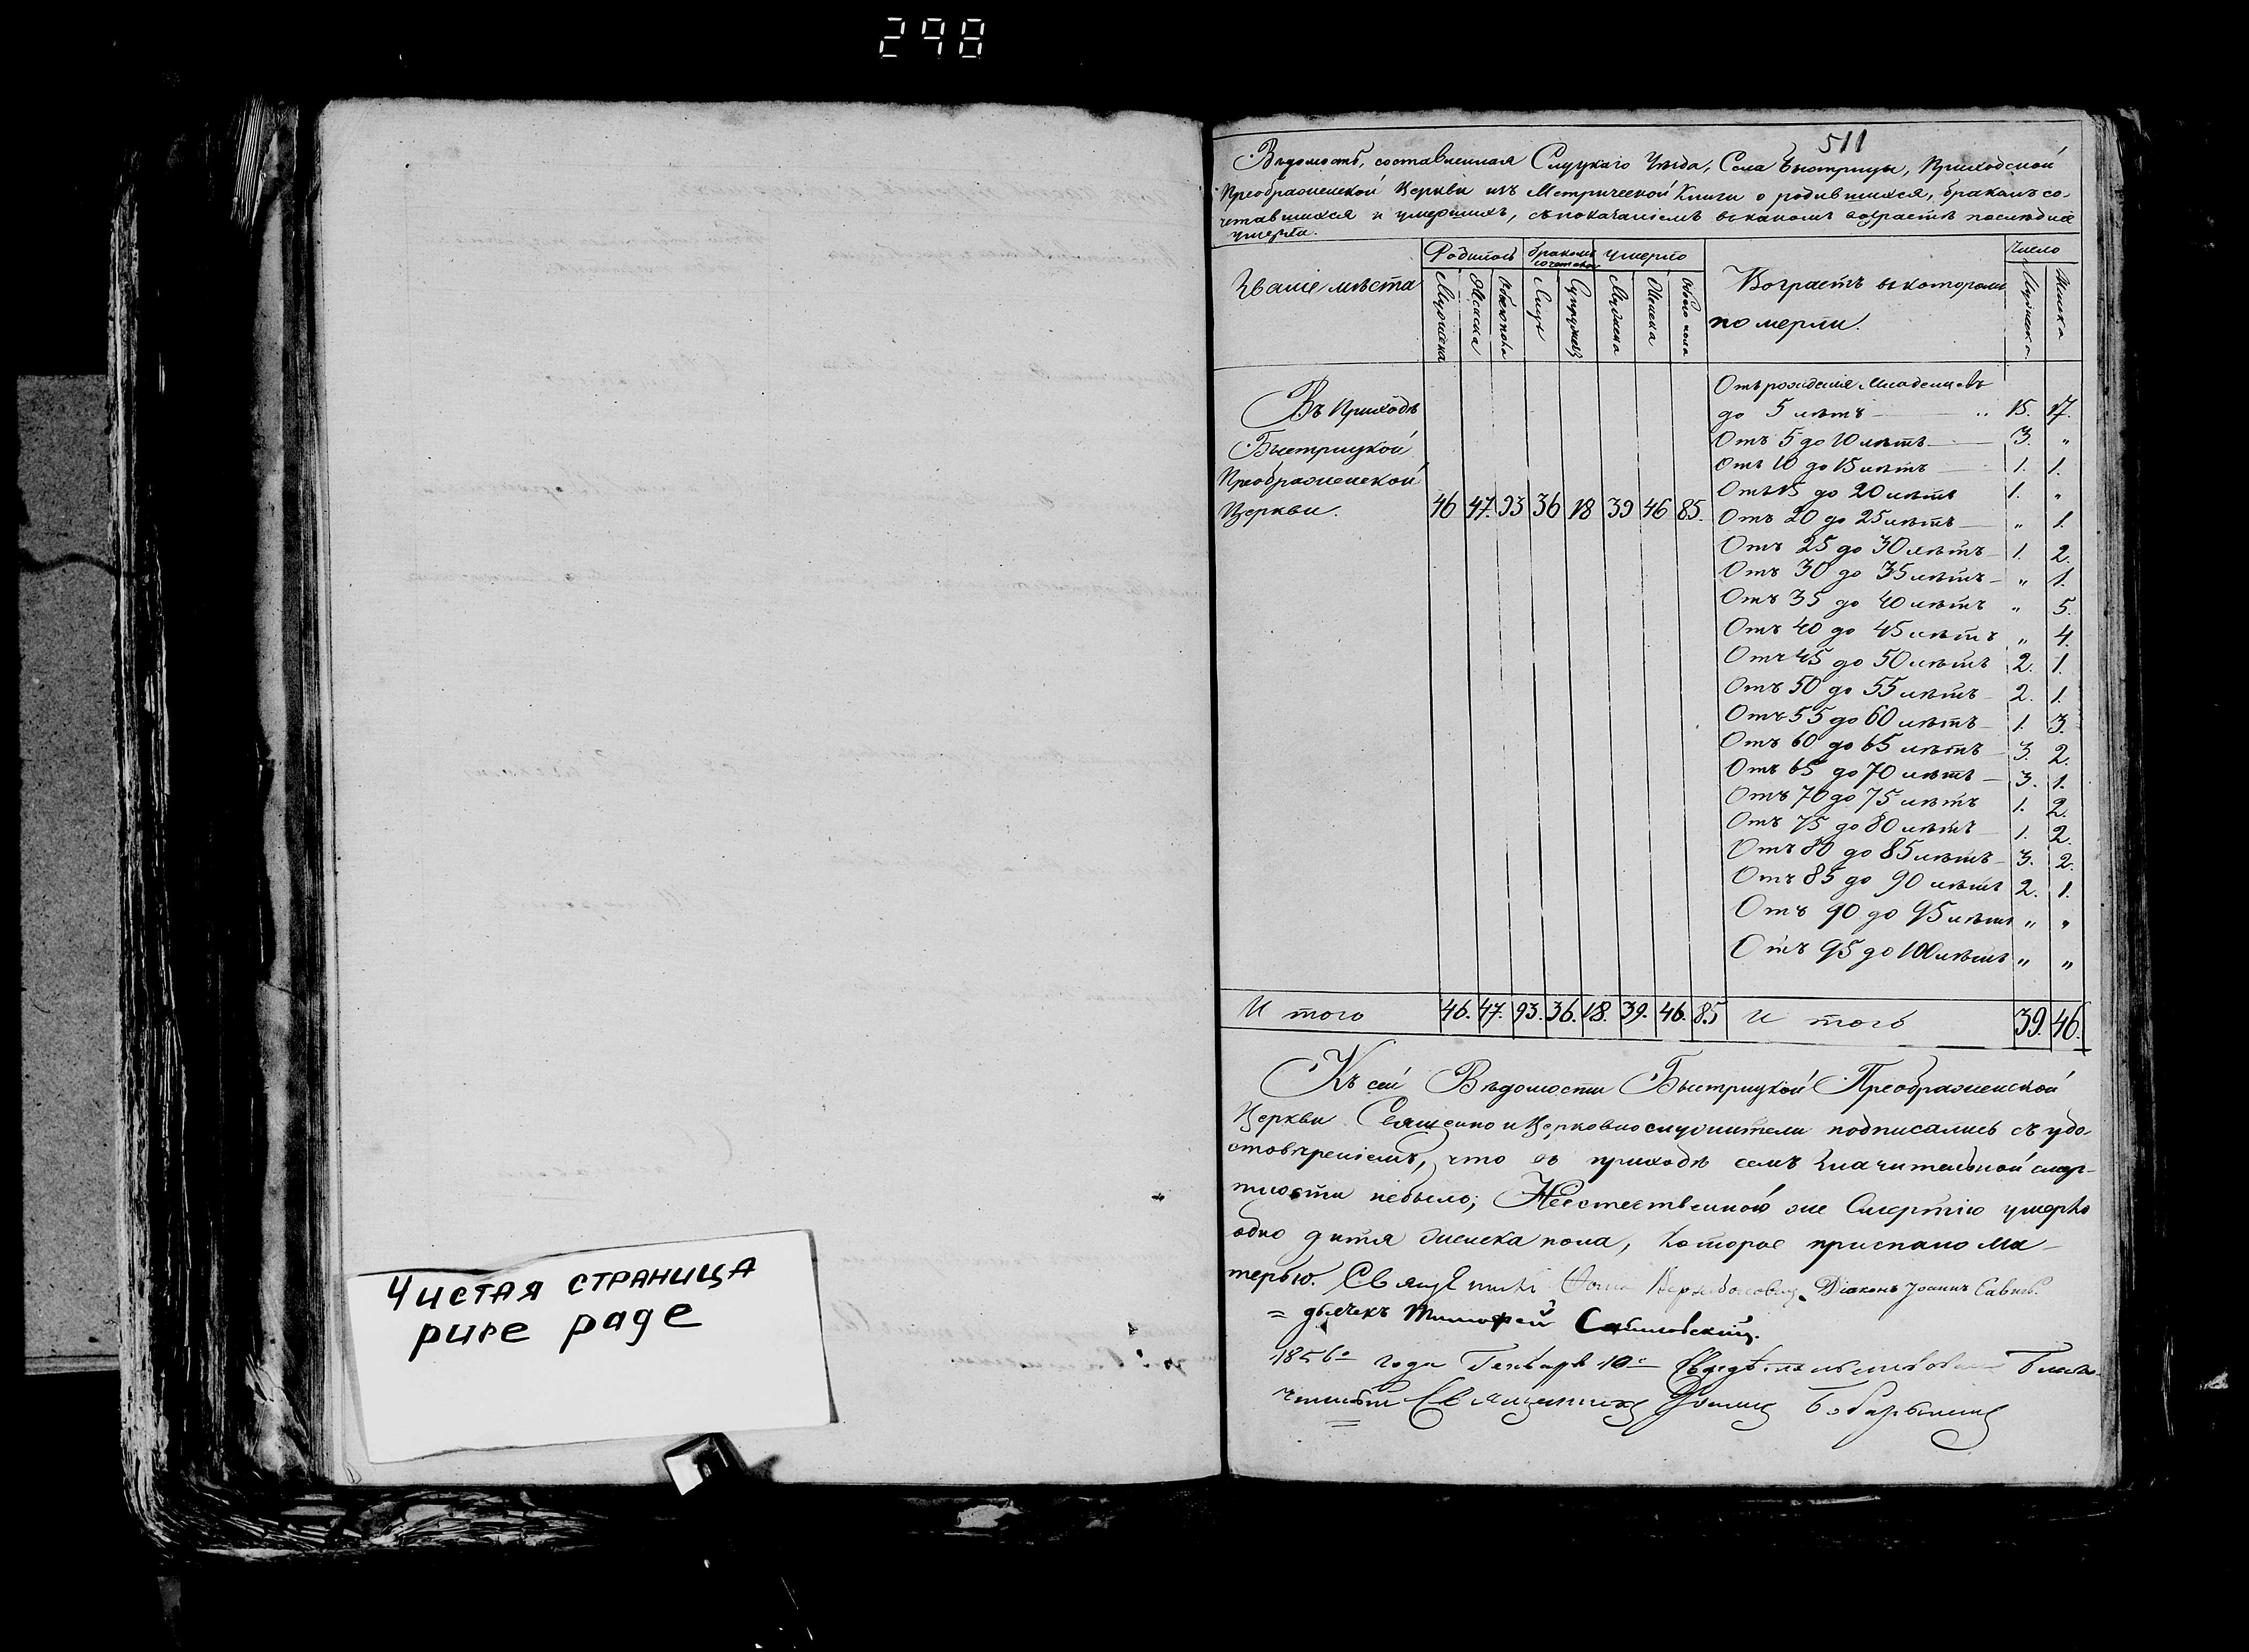 298
Чистая страница
pure page
511
Вѣдомость, составленная Слуцкаго Уѣзда, Села Быстрицы, Приходской
Преображенской Церкви изъ Метрической Книги о родившихся, бракомъ со-
четавшихся и умершихъ, съ показаніемъ въ какомъ возрастѣ послѣдніе
умерли.
Званіе мѣста
Родилось
бракомъ сочетано
Умерло
Возрастъ въ которомъ
померли.
Число
Мужеска
Женска
Обоего пола
Лицъ
Супружествъ
Мужеска
Женска
Обоего пола
Мужеска
Женска
Въ Приходѣ
Быстрицкой
Преображенской
Церкви. 46 47. 93 36 18 39 46 85.
Отъ рожденія Младенцевъ
до 5 лѣтъ 15. 17.
Отъ 5 до 10 лѣтъ 3. "
Отъ 10 до 15 лѣтъ 1. 1.
Отъ 15 до 20 лѣтъ 1. "
Отъ 20 до 25 лѣтъ " 1.
Отъ 25 до 30 лѣтъ 1. 2.
Отъ 30 до 35 лѣтъ " 1.
Отъ 35 до 40 лѣтъ " 5.
Отъ 40 до 45 лѣтъ " 4.
Отъ 45 до 50 лѣтъ 2. 1.
Отъ 50 до 55 лѣтъ 2. 1.
Отъ 55 до 60 лѣтъ 1. 3.
Отъ 60 до 65 лѣтъ 3. 2.
Отъ 65 до 70 лѣтъ 3. 1.
Отъ 70 до 75 лѣтъ 1. 2.
Отъ 75 до 80 лѣтъ 1. 2.
Отъ 80 до 85 лѣтъ 3. 2.
Отъ 85 до 90 лѣтъ 2. 1.
Отъ 90 до 95 лѣтъ " "
Отъ 95 до 100 лѣтъ " "
И того 46. 47. 93. 36. 18. 39. 46. 85 И того 39. 46.
Къ сей Вѣдомости Быстрицкой Преображенской
Церкви Священно и Церковнослужители подписались съ удо-
стовѣреніемъ, что въ приходѣ семъ значительной смер-
тности небыло; Неестественною же Смертію умерло
одно дитя женска пола, которое приспано ма-
терью. Священникъ Діаконъ Іоаннъ
= дьячекъ Тимофей
1856го года Генваря 10го Благо-
чинный Священникъ